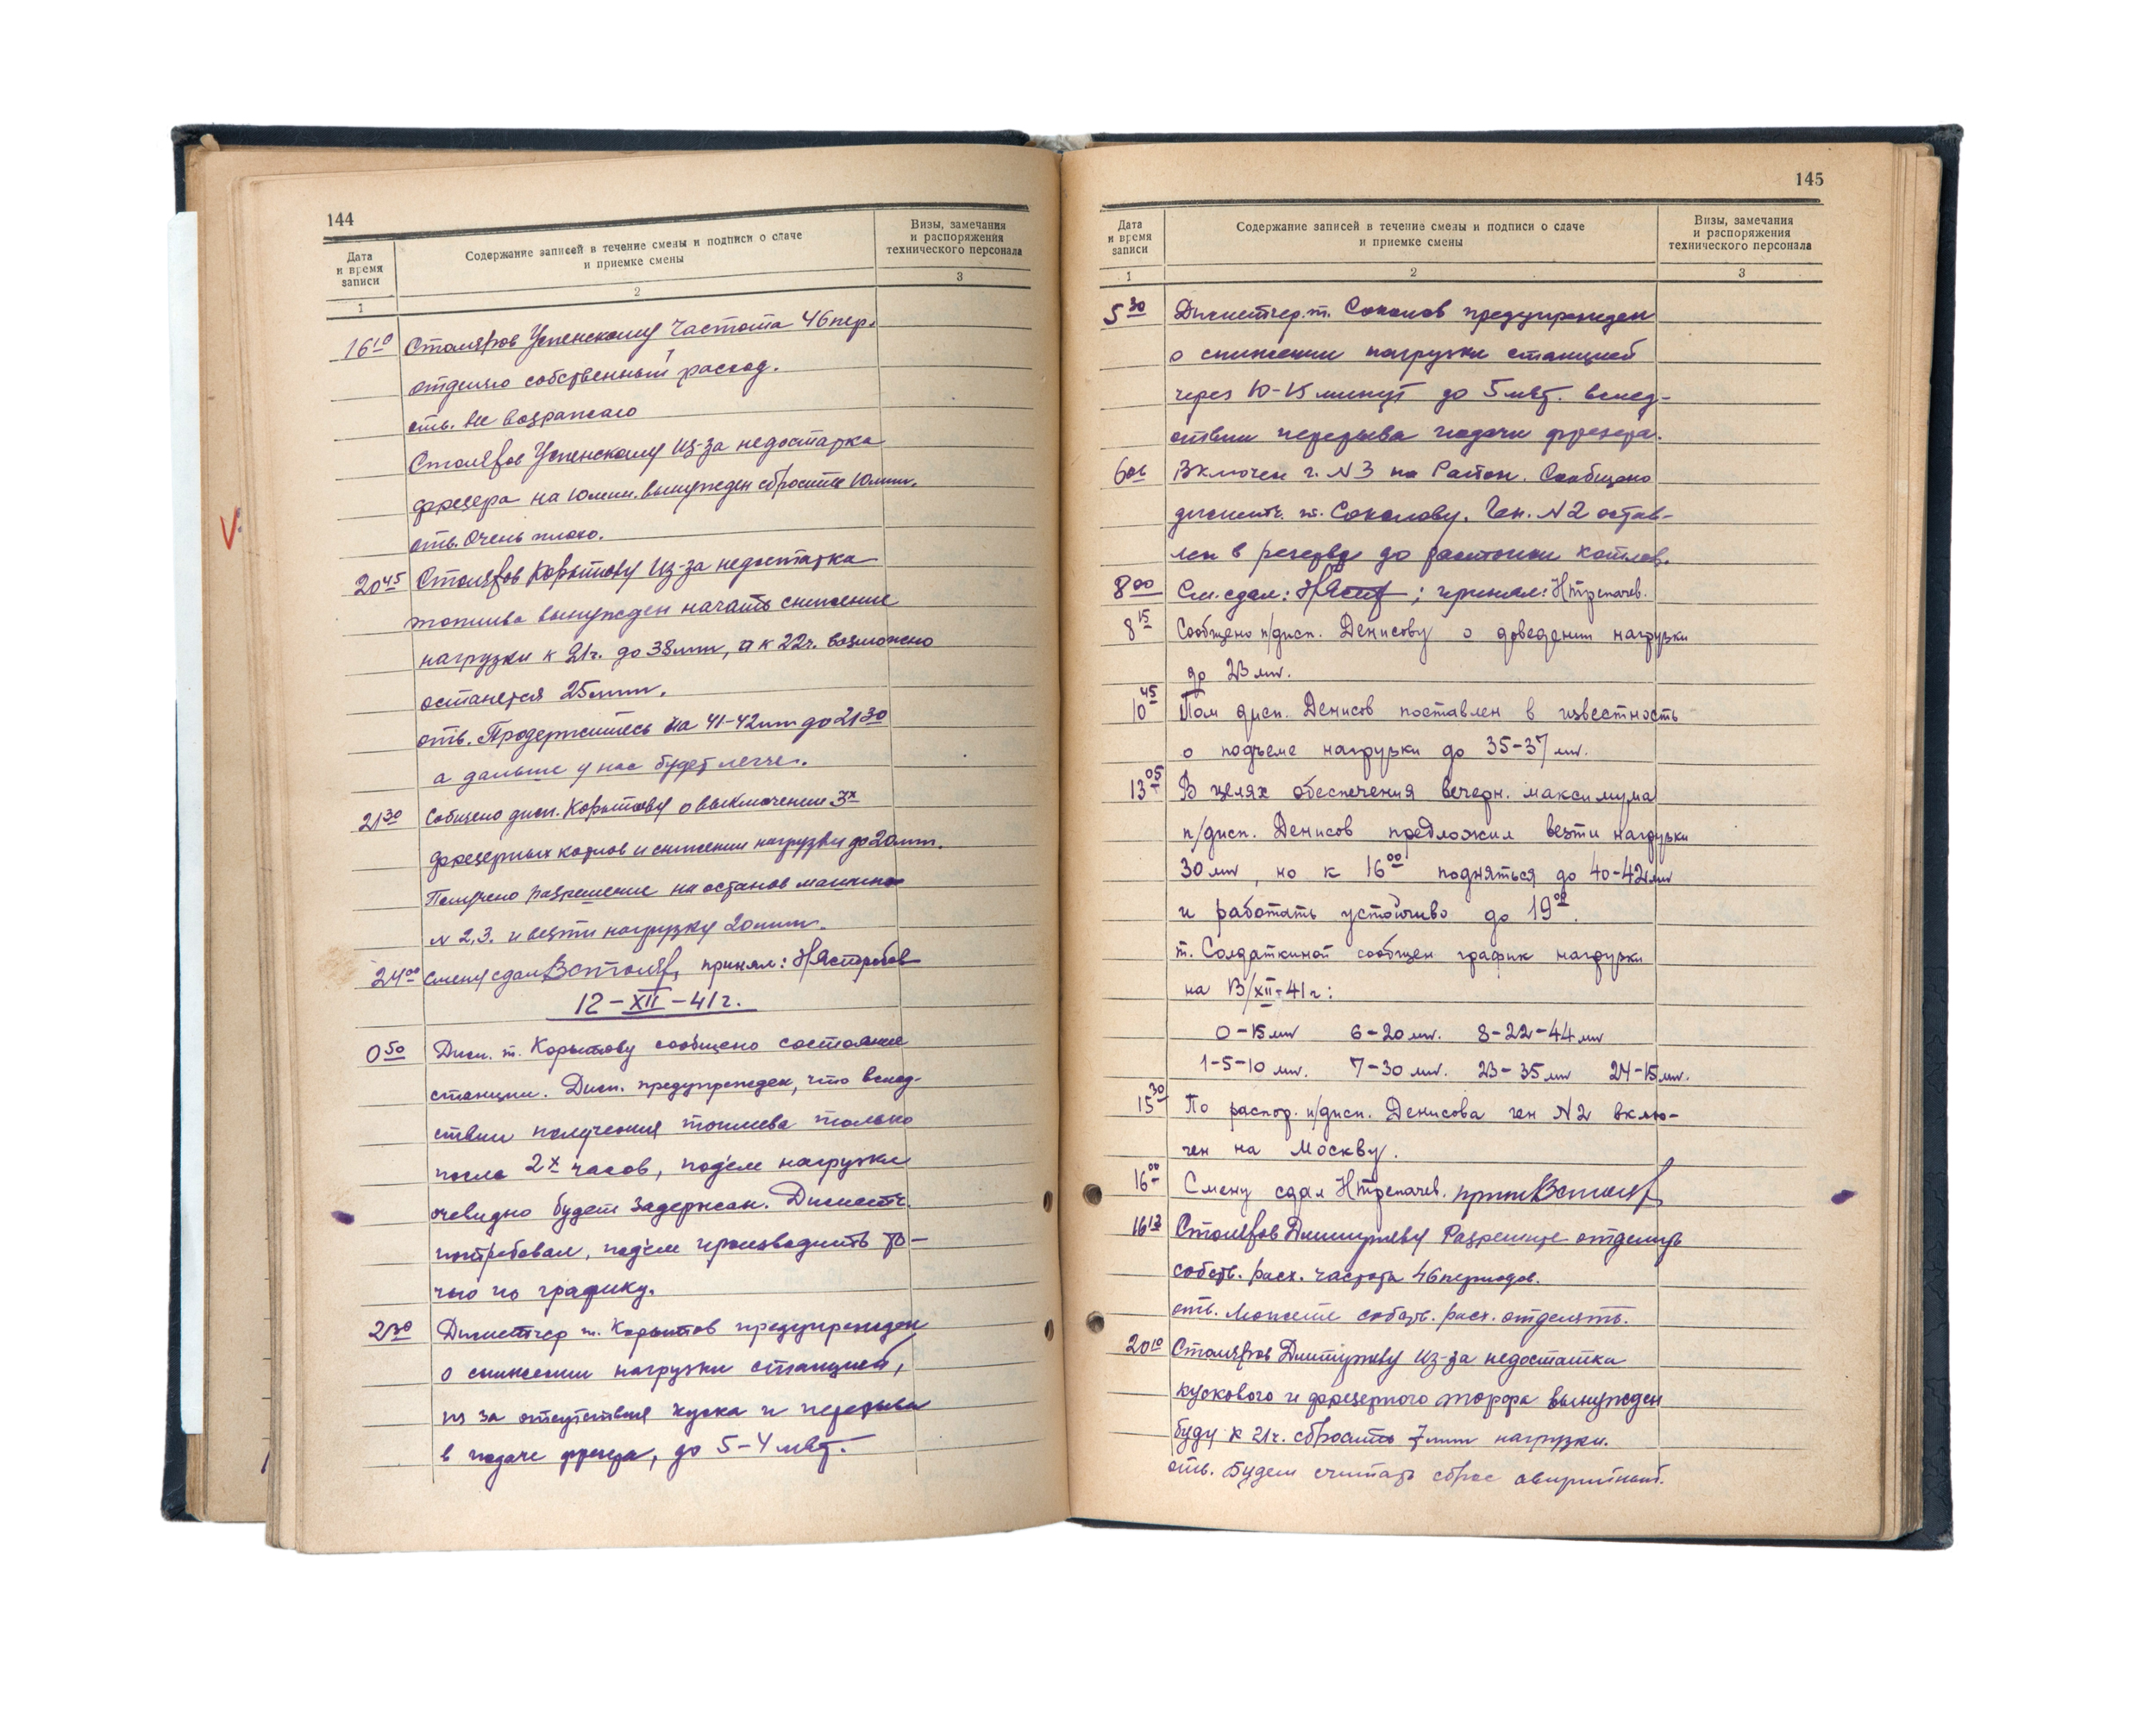 144
Дата
и время
записи
Содержание записей в течение смены и подписи о сдаче
и приемке смены
Визы, замечания
и распоряжения
технического персонала
1
2
3
16 10 Столяров Успенскому Частота 46 пер.
отделяю собственный расход.
отв. Не возражаю
Столяров Успенскому Из-за недостатка
фрезера на 10 мин. вынужден сбросить 10 мвт.
отв. Очень плохо.
20 45 Столяров Корытову Из-за недостатка
топлива вынужден начать снижение
нагрузки к 21ч. до 38 мвт, а к 22ч. возможно
останется 25 мвт.
отв. Продержитесь на 41-42 мвт до 21 30
а дальше у нас будет легче.
21 30 Собщено дисп. Корытову о выключении 3х
фрезерных котлов и снижении нагрузки до 20 мвт.
Получено разрешение на останов машины
N 2,3. и везти нагрузку 20 мвт.
24 00 Смену сдал ВСтоляр, принял: НЯстребов
12-XII-41г.
0 50 Дисп. т. Корытову сообщено состояние
станции. Дисп. предупрежден, что вслед-
ствии получения топлива только
после 2х часов, подъем нагрузки
очевидно будет задержан. Диспетч.
потребовал, подъем производить то-
чно по графику.
2 30 Диспетчер т. Корытов предупрежден
о снижении нагрузки станцией,
из за отсутствия куска и перерыва
в подаче фрезера, до 5-4 мвт.
V
145
Дата
и время
записи
Содержание записей в течение смены и подписи о сдаче
и приемке смены
Визы, замечания
и распоряжения
технического персонала
1
2
3
5 30 Диспетчер т. Соколов предупрежден
о снижении нагрузки станцией
через 10-15 минут до 5 мвт. вслед-
ствии перерыва подачи фрезера.
6 06 Включен г. N3 на Район. Сообщено
диспетч. т. Соколову. Ген. N2 остав-
лен в резерве до растопки котлов.
8 00 См. сдал: НЯст; принял: НТрепачев.
8 15 Сообщено п/дисп. Денисову о доведении нагрузки
до 23 мw.
10 45 Пом дисп. Денисов поставлен в известность
о подъеме нагрузки до 35-37 мw.
13 05 В целях обеспечения вечерн. максимума
п/дисп. Денисов предложил везти нагрузки
30 мw, но к 16 00 подняться до 40-42 мw
и работать устойчиво до 19 00.
т. Солдаткиной сообщен график нагрузки
на 13/XII-41г:
0-15 мw 6-20 мw. 8-22-44 мw
1-5-10 мw. 7-30 мw. 23-35 мw 24-15 мw.
15 30 По распор. п/дисп. Денисова ген N2 вклю-
чен на Москву.
16 00 Смену сдал НТрепачев. принВСтоляр
16 13 Столяров Дмитриеву Разрешите отделить
собств. расх. частота 46 периодов.
отв. Можете собств. расх. отделять.
20 10 Столяров Дмитриеву Из-за недостатка
кускового и фрезерного торфа вынужден
буду к 21ч. сбросить 7 мвт нагрузки.
отв. Будем считать сброс аварийный.